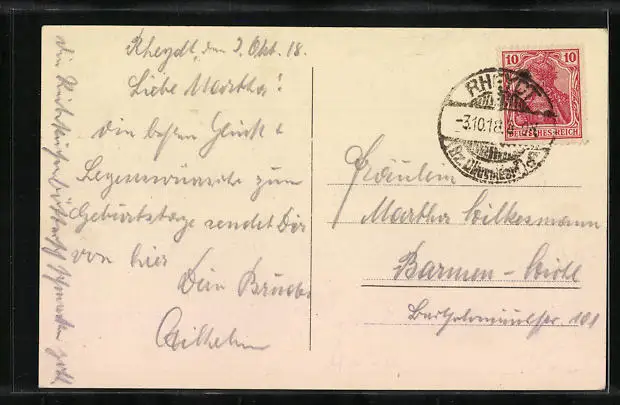 Rheydt, den 3. Okt. 18.
Liebe Martha!
Die besten Glück &
Segenswünsche zum
Geburtstage sendet Dir
von hier Dein Bruder
Wilhelm
10 10
DEUTSCHES REICH
RHEYDT
-3.10.18.
(Bz. Düsseldorf)
Fräulein
Martha Wilkesmann
Barmen-
Bartholomäusstr. 101